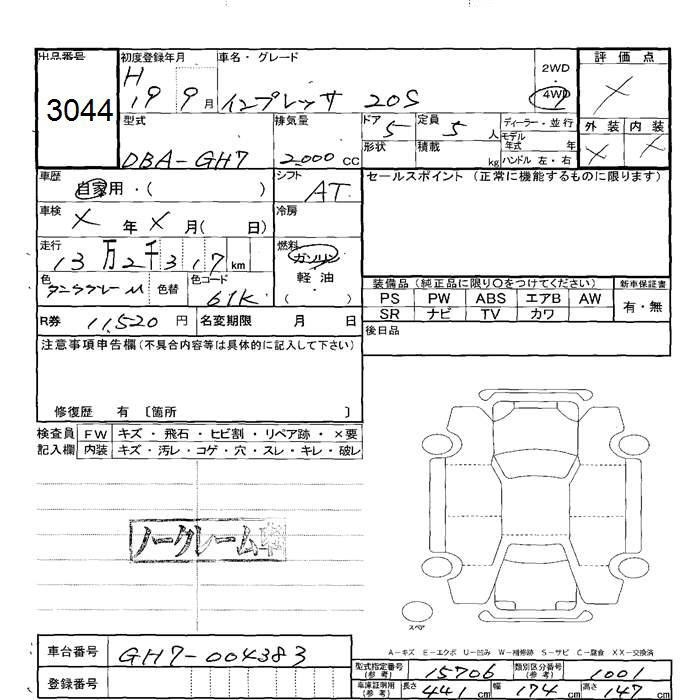 出品番号 初度登録年月 車名・グレード 2WD 評価点
3044 H 19 9月 インプレッサ 20S 4WD ×
型式 排気量 ドア 5 定員 5人 ディーラー・並行 外装 内装
DBA-GH7 2000cc 形状 積載 kg モデル年式 年 × ×
ハンドル 左・右
車歴 自家用・( ) シフト AT セールスポイント (正常に機能するものに限ります)
車検 × 年 × 月( 日) 冷房
走行 13万2千317km 燃料 ガソリン
軽油
( )
色 色替 色コード 61K 装備品 (純正品に限り○をつけてください) 新車保証書
PS PW ABS エアB AW 有・無
SR ナビ TV カワ
R券 11,520円 名変期限 月 日 後日品
注意事項申告欄(不具合内容等は具体的に記入して下さい)
修復歴 有 〔箇所 〕
検査員 FW キズ・飛石・ヒビ割・リペア跡・×要
記入欄 内装 キズ・汚レ・コゲ・穴・スレ・キレ・破レ
ノークレーム車
スペア
A-キズ E-エクボ U-凹み W-補修跡 S-サビ C-腐食 XX-交換済
車台番号 GH7-004383 型式指定番号(参考) 15706 類別区分番号(参考) 1001
登録番号 車庫証明用(参考) 長さ 441cm 幅 174cm 高さ 147cm